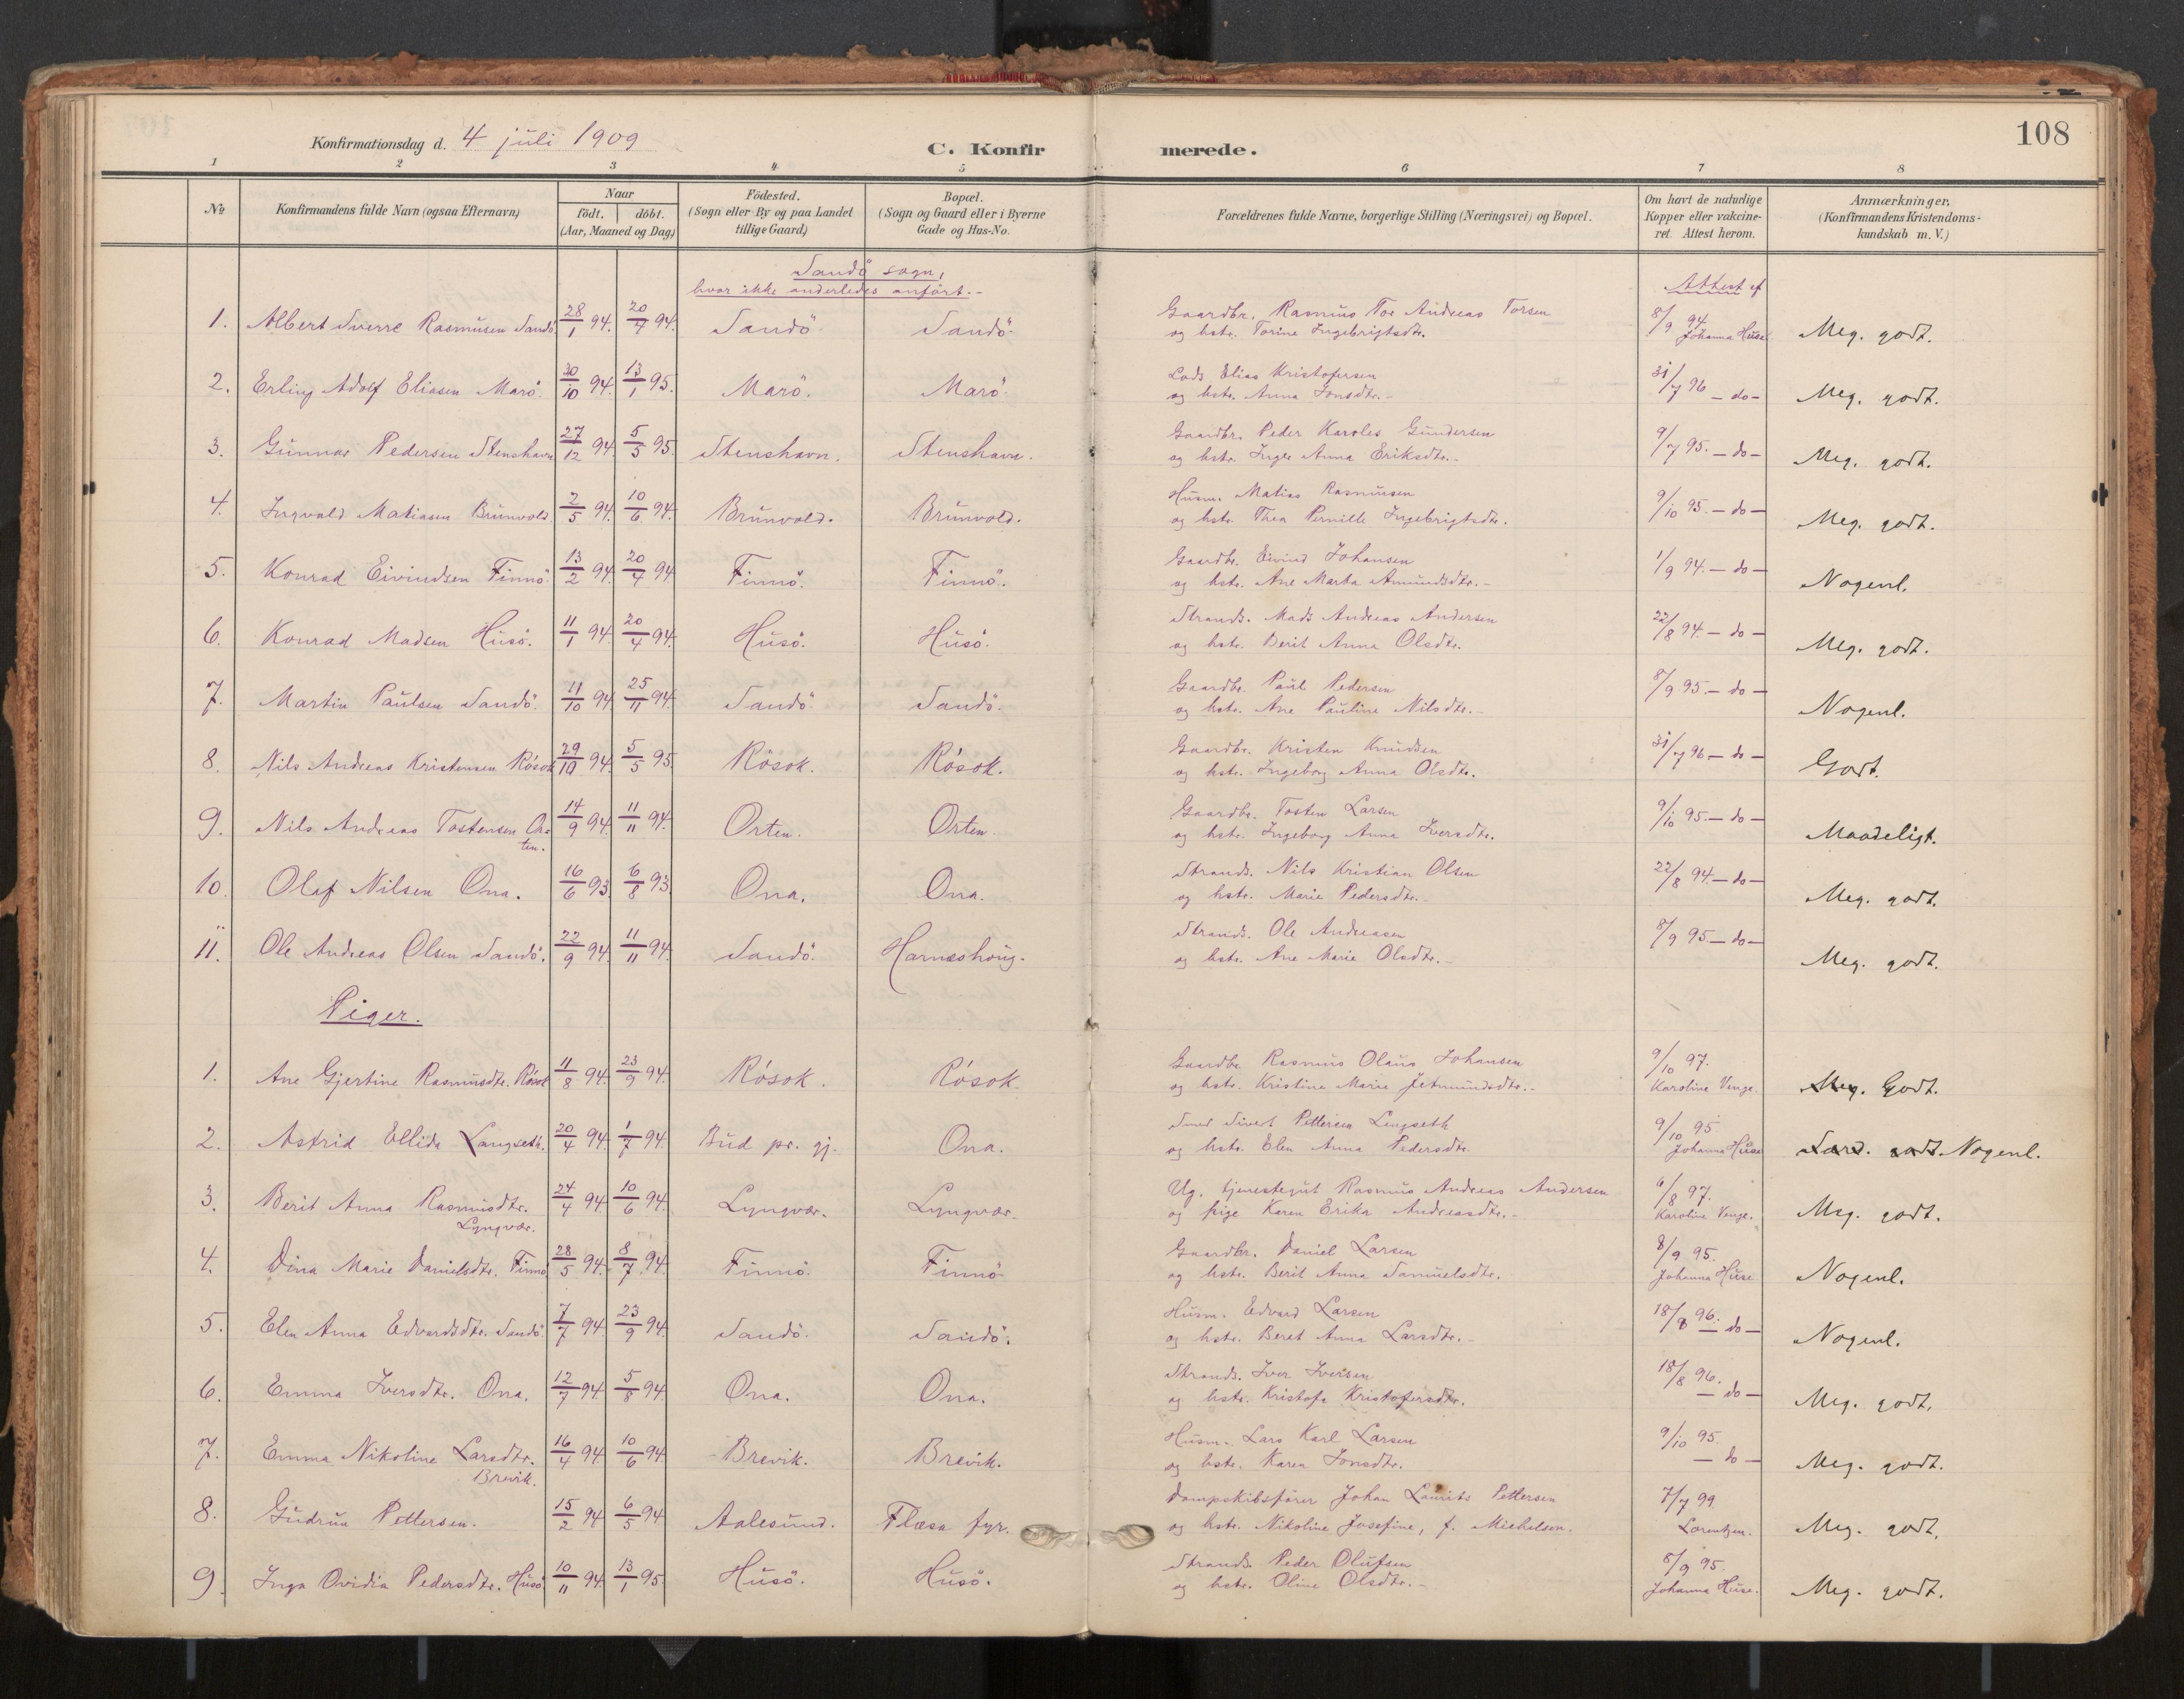 108
Konfirmationsdag d. 4 juli 1909
C. Konfirmerede.
1 2 3 4 5 6 7 8
No
Konfirmandens fulde Navn (ogsaa Efternavn)
Naar
födt. döbt.
(Aar, Maaned og Dag)
Födested.
(Sogn eller By og paa Landet
tillige Gaard)
Bopæl.
(Sogn og Gaard eller i Byerne
Gade og Hus-No.
Forældrenes fulde Navne, borgerlige Stilling (Næringsvei) og Bopæl.
Om havt de naturlige
Kopper eller vakcine-
ret. Attest herom.
Anmærkninger.
(Konfirmandens Kristendoms-
kundskab m. V.)
Sandö sogn,
hvor ikke anderledes anfört.-
Attest af
1. Albert Sverre Rasmusen Sandö 28/1 94. 20/4 94. Sandö. Sandö. Gaardbr. Rasmus Tor Andreas Torsen 8/9 94
og hstr. Torine Ingebrigtsdtr. Johanna Huse Meg. godt.
2. Erling Adolf Eliasen Marö. 30/10 94. 13/1 95. Marö. Marö. Lods Elias Kristofersen 31/7 96 - do -
og hstr. Anna Jonsdtr. - Meg. godt.
3. Gunnar Pedersen Stenshavn 27/12 94. 5/5 95. Stenshavn. Stenshavn. Gaardbr. Peder Karoles Gundersen 9/7 95. - do -
og hstr. Inger Anna Eriksdtr. - Meg. godt.
4. Ingvald Matiasen Brunvold. 2/5 94. 10/6 94. Brunvold. Brunvold. Husm. Matias Rasmusen 9/10 95. - do -
og hstr. Thea Pernille Ingebrigtsdtr. Meg. godt.
5. Konrad Eivindsen Finnö. 13/2 94. 20/4 94 Finnö. Finnö. Gaardbr. Eivind Johansen 1/9 94. - do -
og hstr. Ane Marta Amundsdtr. - Nogenl.
6. Konrad Madsen Husö. 11/1 94. 20/4 94. Husö. Husö. Strands. Mads Andreas Andersen 22/8 94. - do -
og hstr. Berit Anna Olsdtr. Meg. godt.
7. Martin Paulsen Sandö. 11/10 94. 25/11 94. Sandö. Sandö. Gaardbr. Paul Pedersen 8/9 95. - do -
og hstr. Ane Pauline Nilsdtr. - Nogenl.
8. Nils Andreas Kristensen Rösok 29/10 94. 5/5 95 Rösok. Rösok. Gaardbr. Kristen Knudsen 31/7 96 - do -
og hstr. Ingeborg Anna Olsdtr. Godt.
9. Nils Andreas Tostensen Or- 14/9 94. 11/11 94. Orten. Orten. Gaardbr. Tosten Larsen 9/10 95. - do -
ten. og hstr. Ingeborg Anna Iversdtr. Maadeligt.
10. Olaf Nilsen Ona. 16/6 93. 6/8 93. Ona. Ona. Strands. Nils Kristian Olsen 22/8 94. - do -
og hstr. Marie Pedersdtr. - Meg. godt.
11. Ole Andreas Olsen Sandö. 22/9 94. 11/11 94. Sandö. Harnæshoug. Strands. Ole Andreasen 8/9 95. - do -
og hstr. Ane Marie Olsdtr. - Meg. godt.
Piger.
1. Ane Gjertine Rasmusdtr. Rösok 11/8 94. 23/9 94. Rösok. Rösok. Gaardbr. Rasmus Olaus Johansen 9/10 97.
og hstr. Kristine Marie Jetmundsdtr. - Karoline Venge. Meg. Godt.
2. Astrid Ellida Langseth. 20/4 94. 1/7 94. Bud pr. gj. Ona. Smed Sivert Pettersen Lengseth 9/10 95
og hstr. Elen Anna Pedersdtr. Johanna Huse Særd. godt. Nogenl.
3. Berit Anna Rasmusdtr. 24/4 94. 10/6 94. Lyngvær. Lyngvær. Ug. tjenestegut Rasmus Andreas Andersen 6/8 97.
Lyngvær. og pige Karen Erika Andreasdtr. - Karoline Venge. Meg. godt.
4. Dina Marie Danielsdtr. Finnö 28/5 94. 8/7 94. Finnö. Finnö. Gaardbr. Daniel Larsen 8/9 95.
og hstr. Berit Anna Samuelsdtr. Johanna Huse Nogenl.
5. Elen Anna Edvardsdtr. Sandö. 7/7 94. 23/9 94. Sandö. Sandö. Husm. Edvard Larsen 18/8 96. - do -
og hstr. Beret Anna Larsdtr. - Nogenl.
6. Emma Iversdtr. Ona. 12/7 94. 5/8 94. Ona. Ona. Strands. Iver Iversen 18/8 96.
og hstr. Kristofa Kristofersdtr. - do - Meg. godt.
7. Emma Nikoline Larsdtr. 16/4 94. 10/6 94. Brevik. Brevik. Husm. Lars Karl Larsen 9/10 95.
Brevik. og hstr. Karen Jonsdtr. - do - Meg. godt.
8. Gudrun Pettersen. 15/2 94. 6/5 94 Aalesund. Flæsa fyr. Dampskibsförer Johan Laurits Pettersen 7/7 99
og hstr. Nikoline Josefine, f. Michelsen. Lorentzen. Meg. godt.
9. Inga Ovidia Pedersdtr. Husö. 10/11 94. 13/1 95. Husö. Husö. Strands. Peder Olufsen 8/9 95.
og hstr. Oline Olsdtr. - Johanna Huse. Meg. godt.